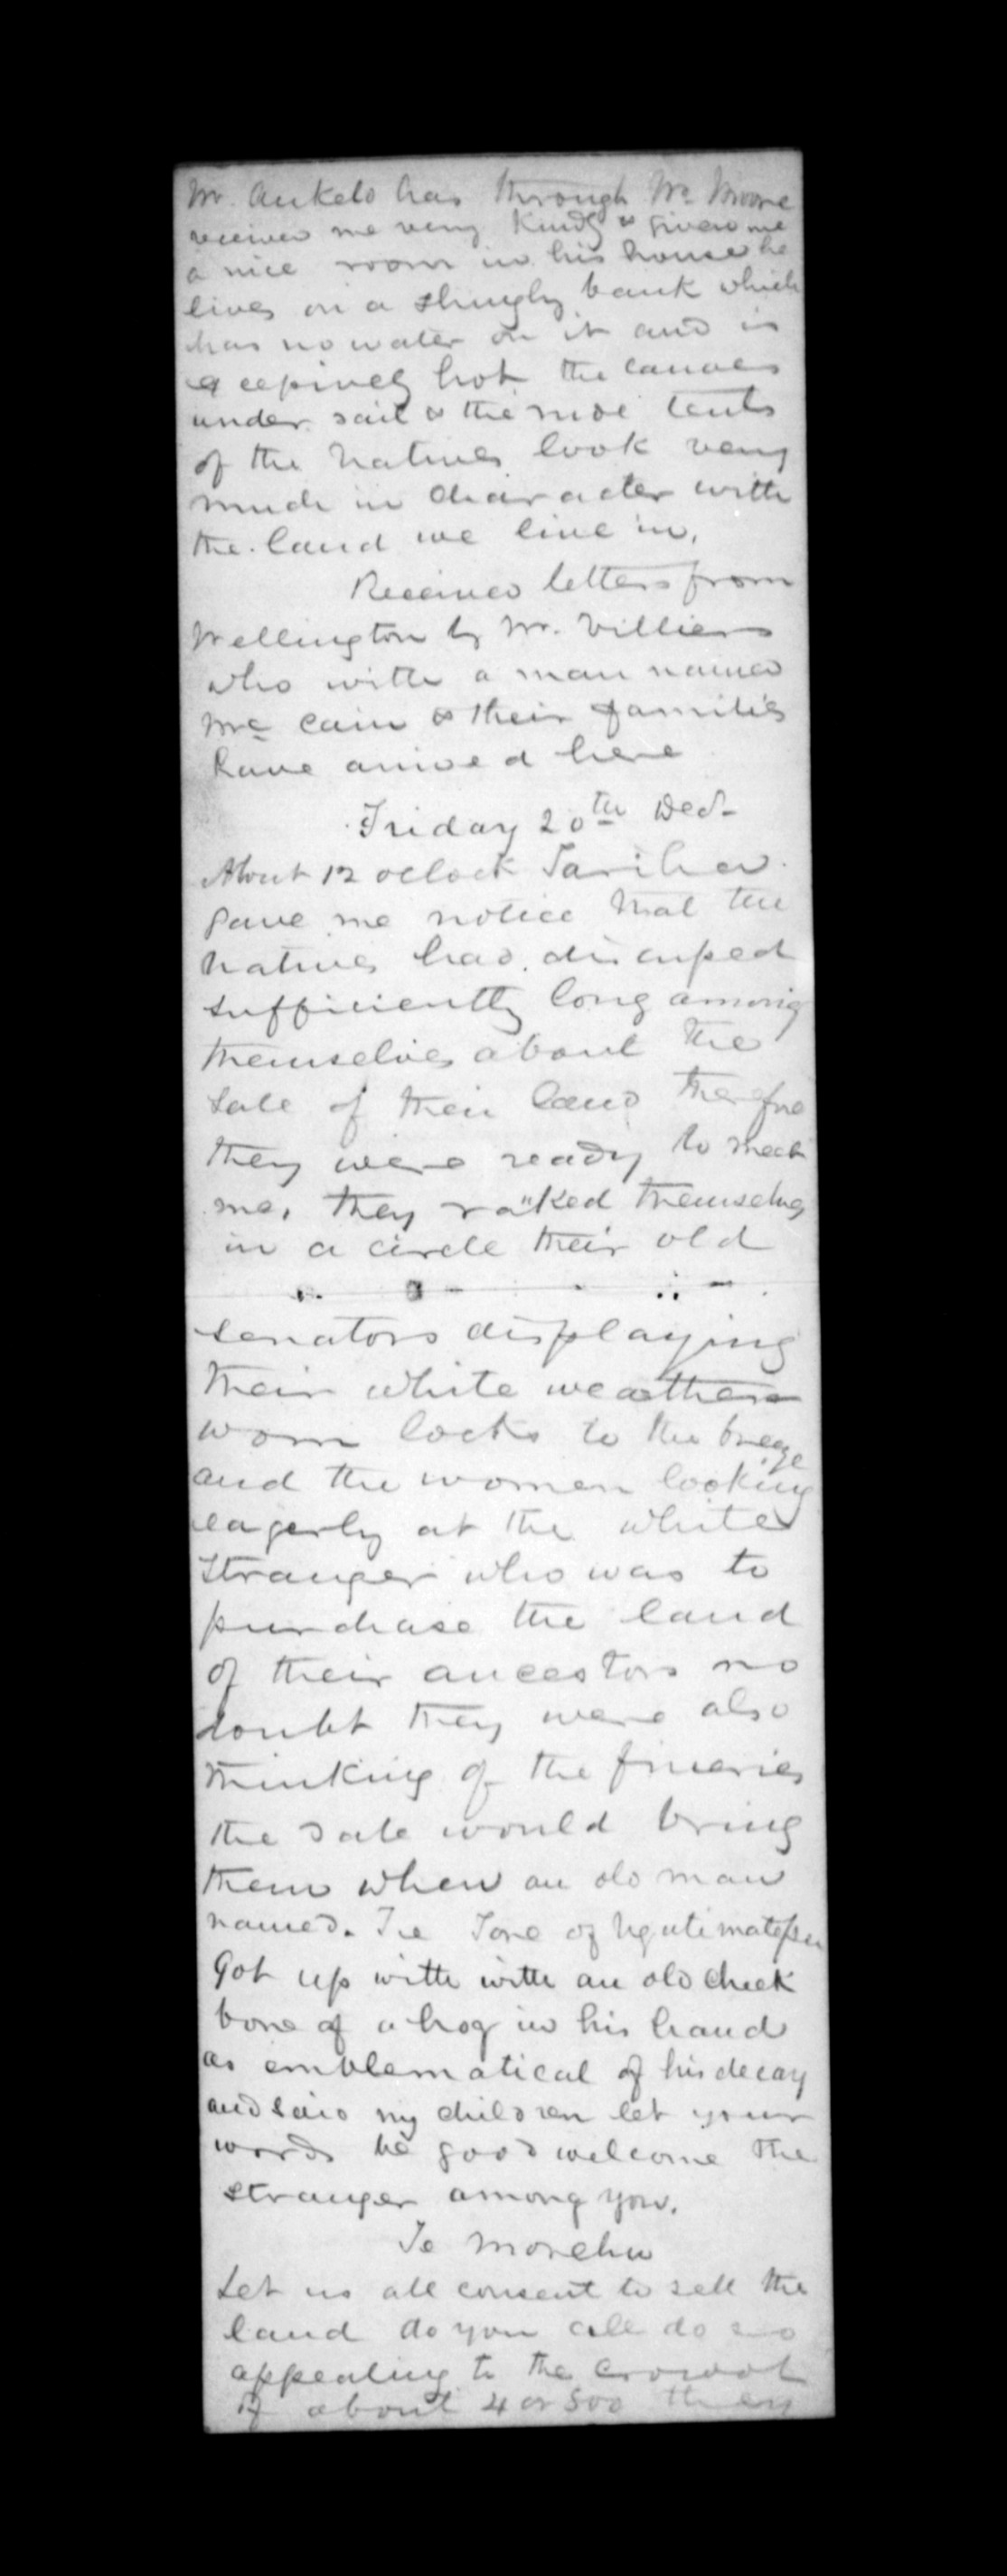 Mr. Ankelo has through Mr. Moore
received me very kindly & given me
a nice room in his house he
lives on a shingly bank which
has no water on it and is
hot the canoes
under sail & the rude tents
of the Natives look very
much in character with
the land we live in.
Received letters from
Wellington by Mr. Villiers
who with a man named
Mc Cain & their families
have arrived here
Friday 20th Decr
About 12 oclock Tarihea
gave me notice that the
natives had discussed
sufficiently long among
themselves about the
sale of their land therefore
they were ready to meet
me, they raked themselves
in a circle their old
senators displaying
their white weather
worn locks to the breeze
and the women looking
eagerly at the white
stranger who was to
purchase the land
of their ancestors no
doubt they were also
thinking of the fineries
the sale would bring
them when an old man
named. Tone of Ngatimatepu
Got up with with an old cheek
bone of a hog in his hand
as emblematical of his decay
and said my children let your
words be good welcome the
stranger among you.
Te Morehu
Let us all consent to sell the
land do you all do so
appealing to the crowd
of about 4 or 500 they